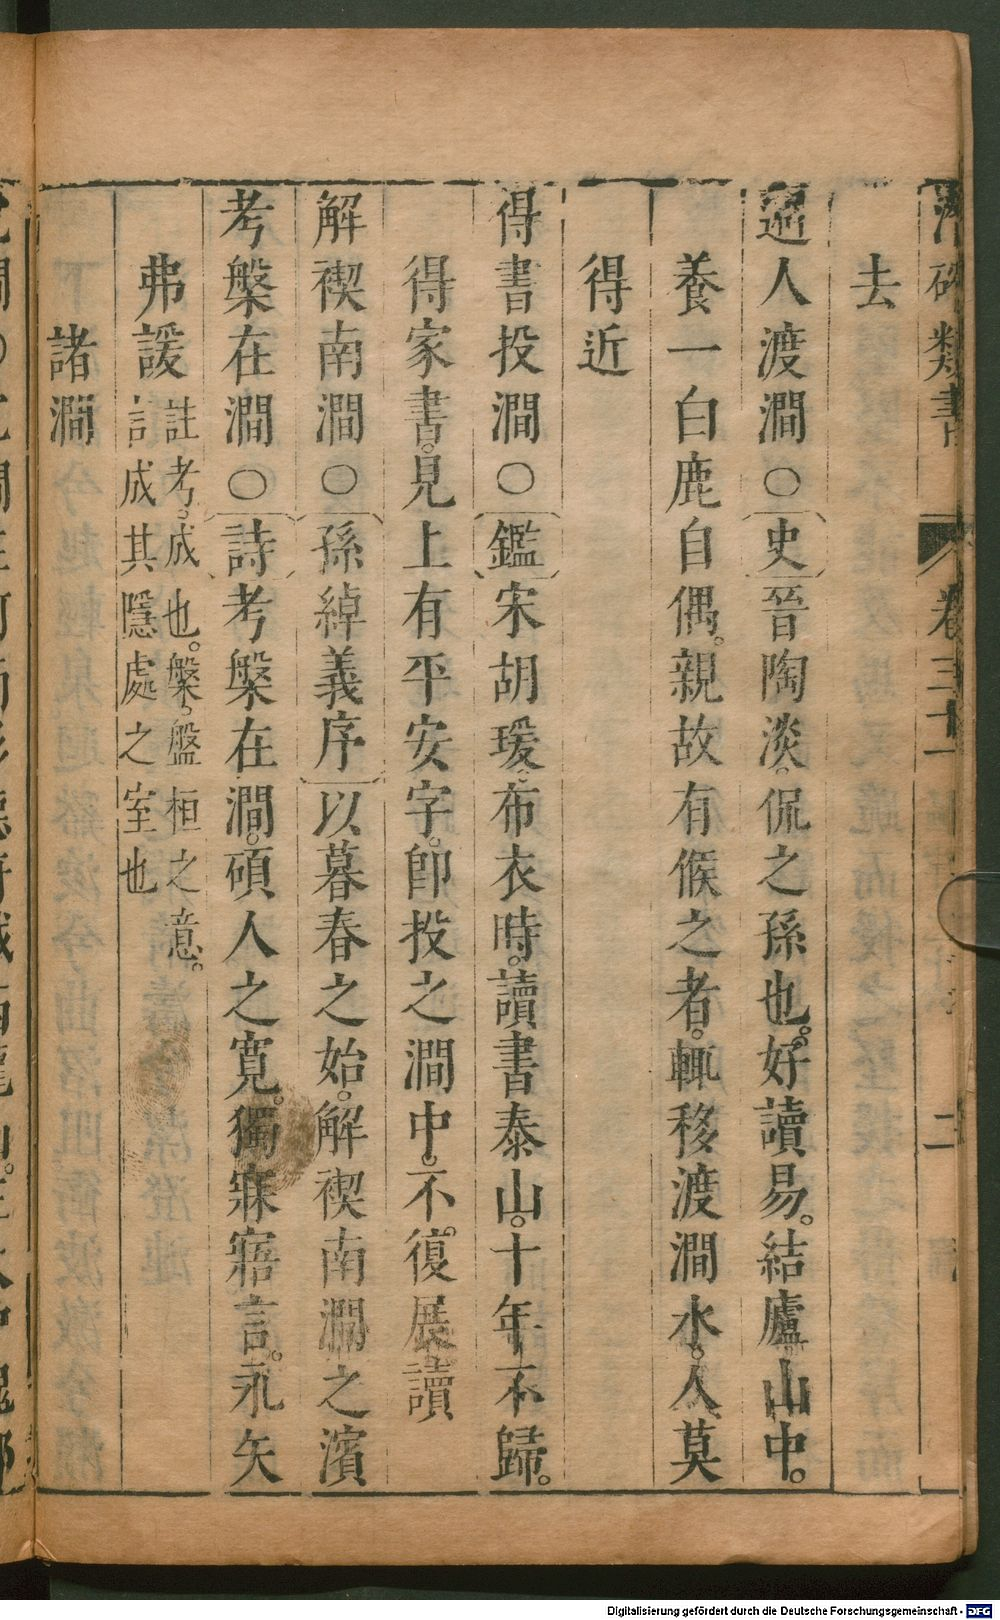 類書 卷三十一 二
去
人渡澗○史晉陶淡侃之孫也好讀易。結廬山中。
養一白鹿自偶。親故有候之者。輒移渡澗水。人莫
得近
得書投澗○鑑宋胡瑗布衣時。讀書泰山。十年不歸。
得家書。見上有平安字。卽投之澗中。不復展讀
解禊南澗○孫綽義序以暮春之始。解禊南澗之濱
考槃在澗○詩考槃在澗。碩人之寬。獨寐寤言。永矢
弗諼註考。成也。槃。盤桓之意。
言成其隱處之室也
諸澗
Digitalisierung gefördert durch die Deutsche Forschungsgemeinschaft - DFG